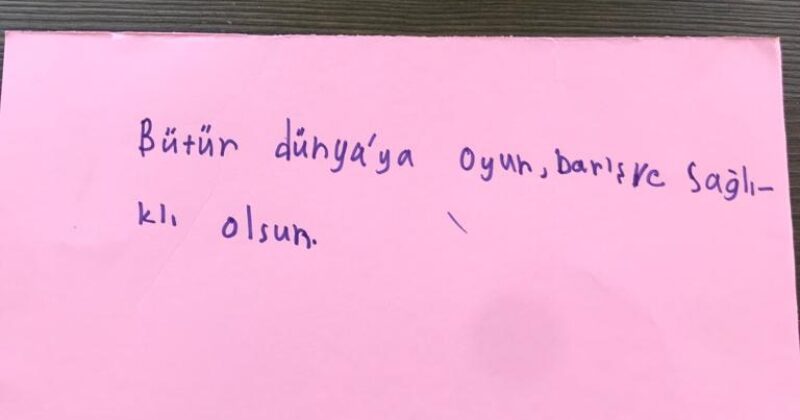 Bütün dünya'ya oyun, barış ve sağlı-
klı olsun.